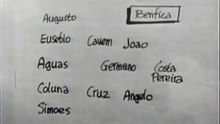 Augusto
Benfica
Eusebio Cavem Joao
Aguas Germano Costa Pereira
Coluna Cruz Angelo
Simoes